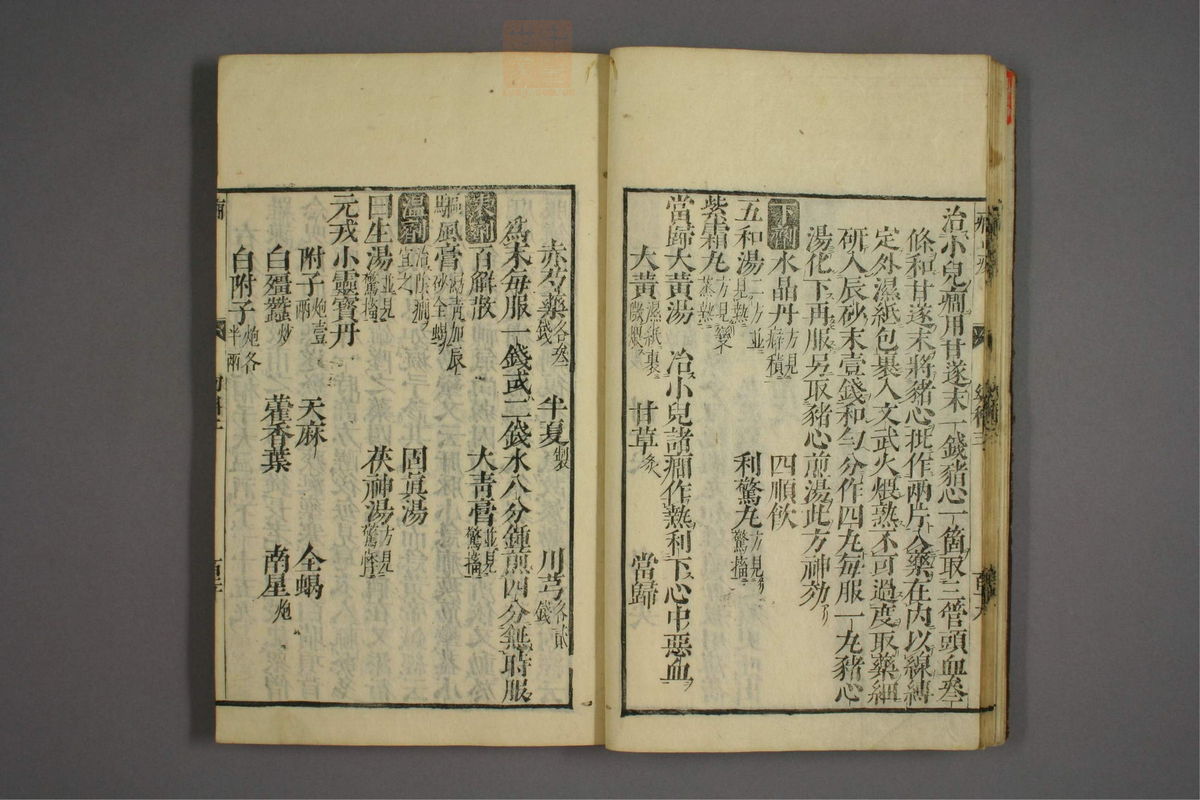 治小兒癇用甘遂末一錢豬心一箇取三管頭血叄
條和甘遂末將豬心批作兩片入藥在內以線縛
定外濕紙包裹入文武火煨熟不可過度取藥細
研入辰砂末壹錢和勻分作四丸每服一丸豬心
湯化下再服另取豬心煎湯此方神効
下劑 水晶丹 方見癖積 四順飲
五和湯 二方並見熱 利驚丸 方見驚搐
紫霜丸 方見變蒸熱
當歸大黃湯 治小兒諸癇作熱利下心中惡血
大黃 濕紙裹微煨 甘草 炙 當歸
赤芍藥 各叄錢 半夏 製 川芎 各貳錢
為末每服一錢或二錢水八分鍾煎四分無時服
百解散 大青膏 並見驚搐
驅風膏 青加辰砂全蝎
溫劑 宜之 固眞湯
日生湯 並見驚搐 茯神湯 方見驚悸
元戎小靈寶丹
附子 炮壹兩 天麻 全蝎
白殭蠶 炒 藿香葉 南星 炮
白附子 炮各半兩